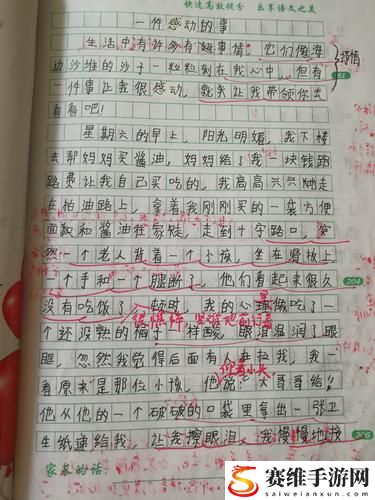 快速高效提分 乐享语文之美
一件感动的事
生活中有许多有趣事情，它们像海
边沙堆的沙子一粒粒刻在我心中，但有
抒情
51
一件事让我很感动，就来让我带领你去
看看吧！
星期六的早上，阳光明媚，我下楼
去帮妈妈买酱油，妈妈给了我一块钱跑
路费让我自己买吃的，我高高兴兴地走
在柏油路上，拿着我刚刚买的一袋方便
面和酱油往家赶，走到十字路口，突
然一个老人背着一个小孩，坐在滑板上，
一个手和一个腿断了，他们看起来很久
204
没有吃饭了，顿时，我的心里像吃了一
很模样 艰难地前行着
个还没熟的橘子一样酸，眼泪湿润了眼
眶，忽然我觉得后面有人在拉我，我一
看原来是那位小孩，他说：“大哥哥给！”
他从他的一个破破的口袋里拿出一张卫
生纸递给我，让我擦眼泪，我慢慢地接
306
家长的话：
赛维手游网
www.saiweianxun.com